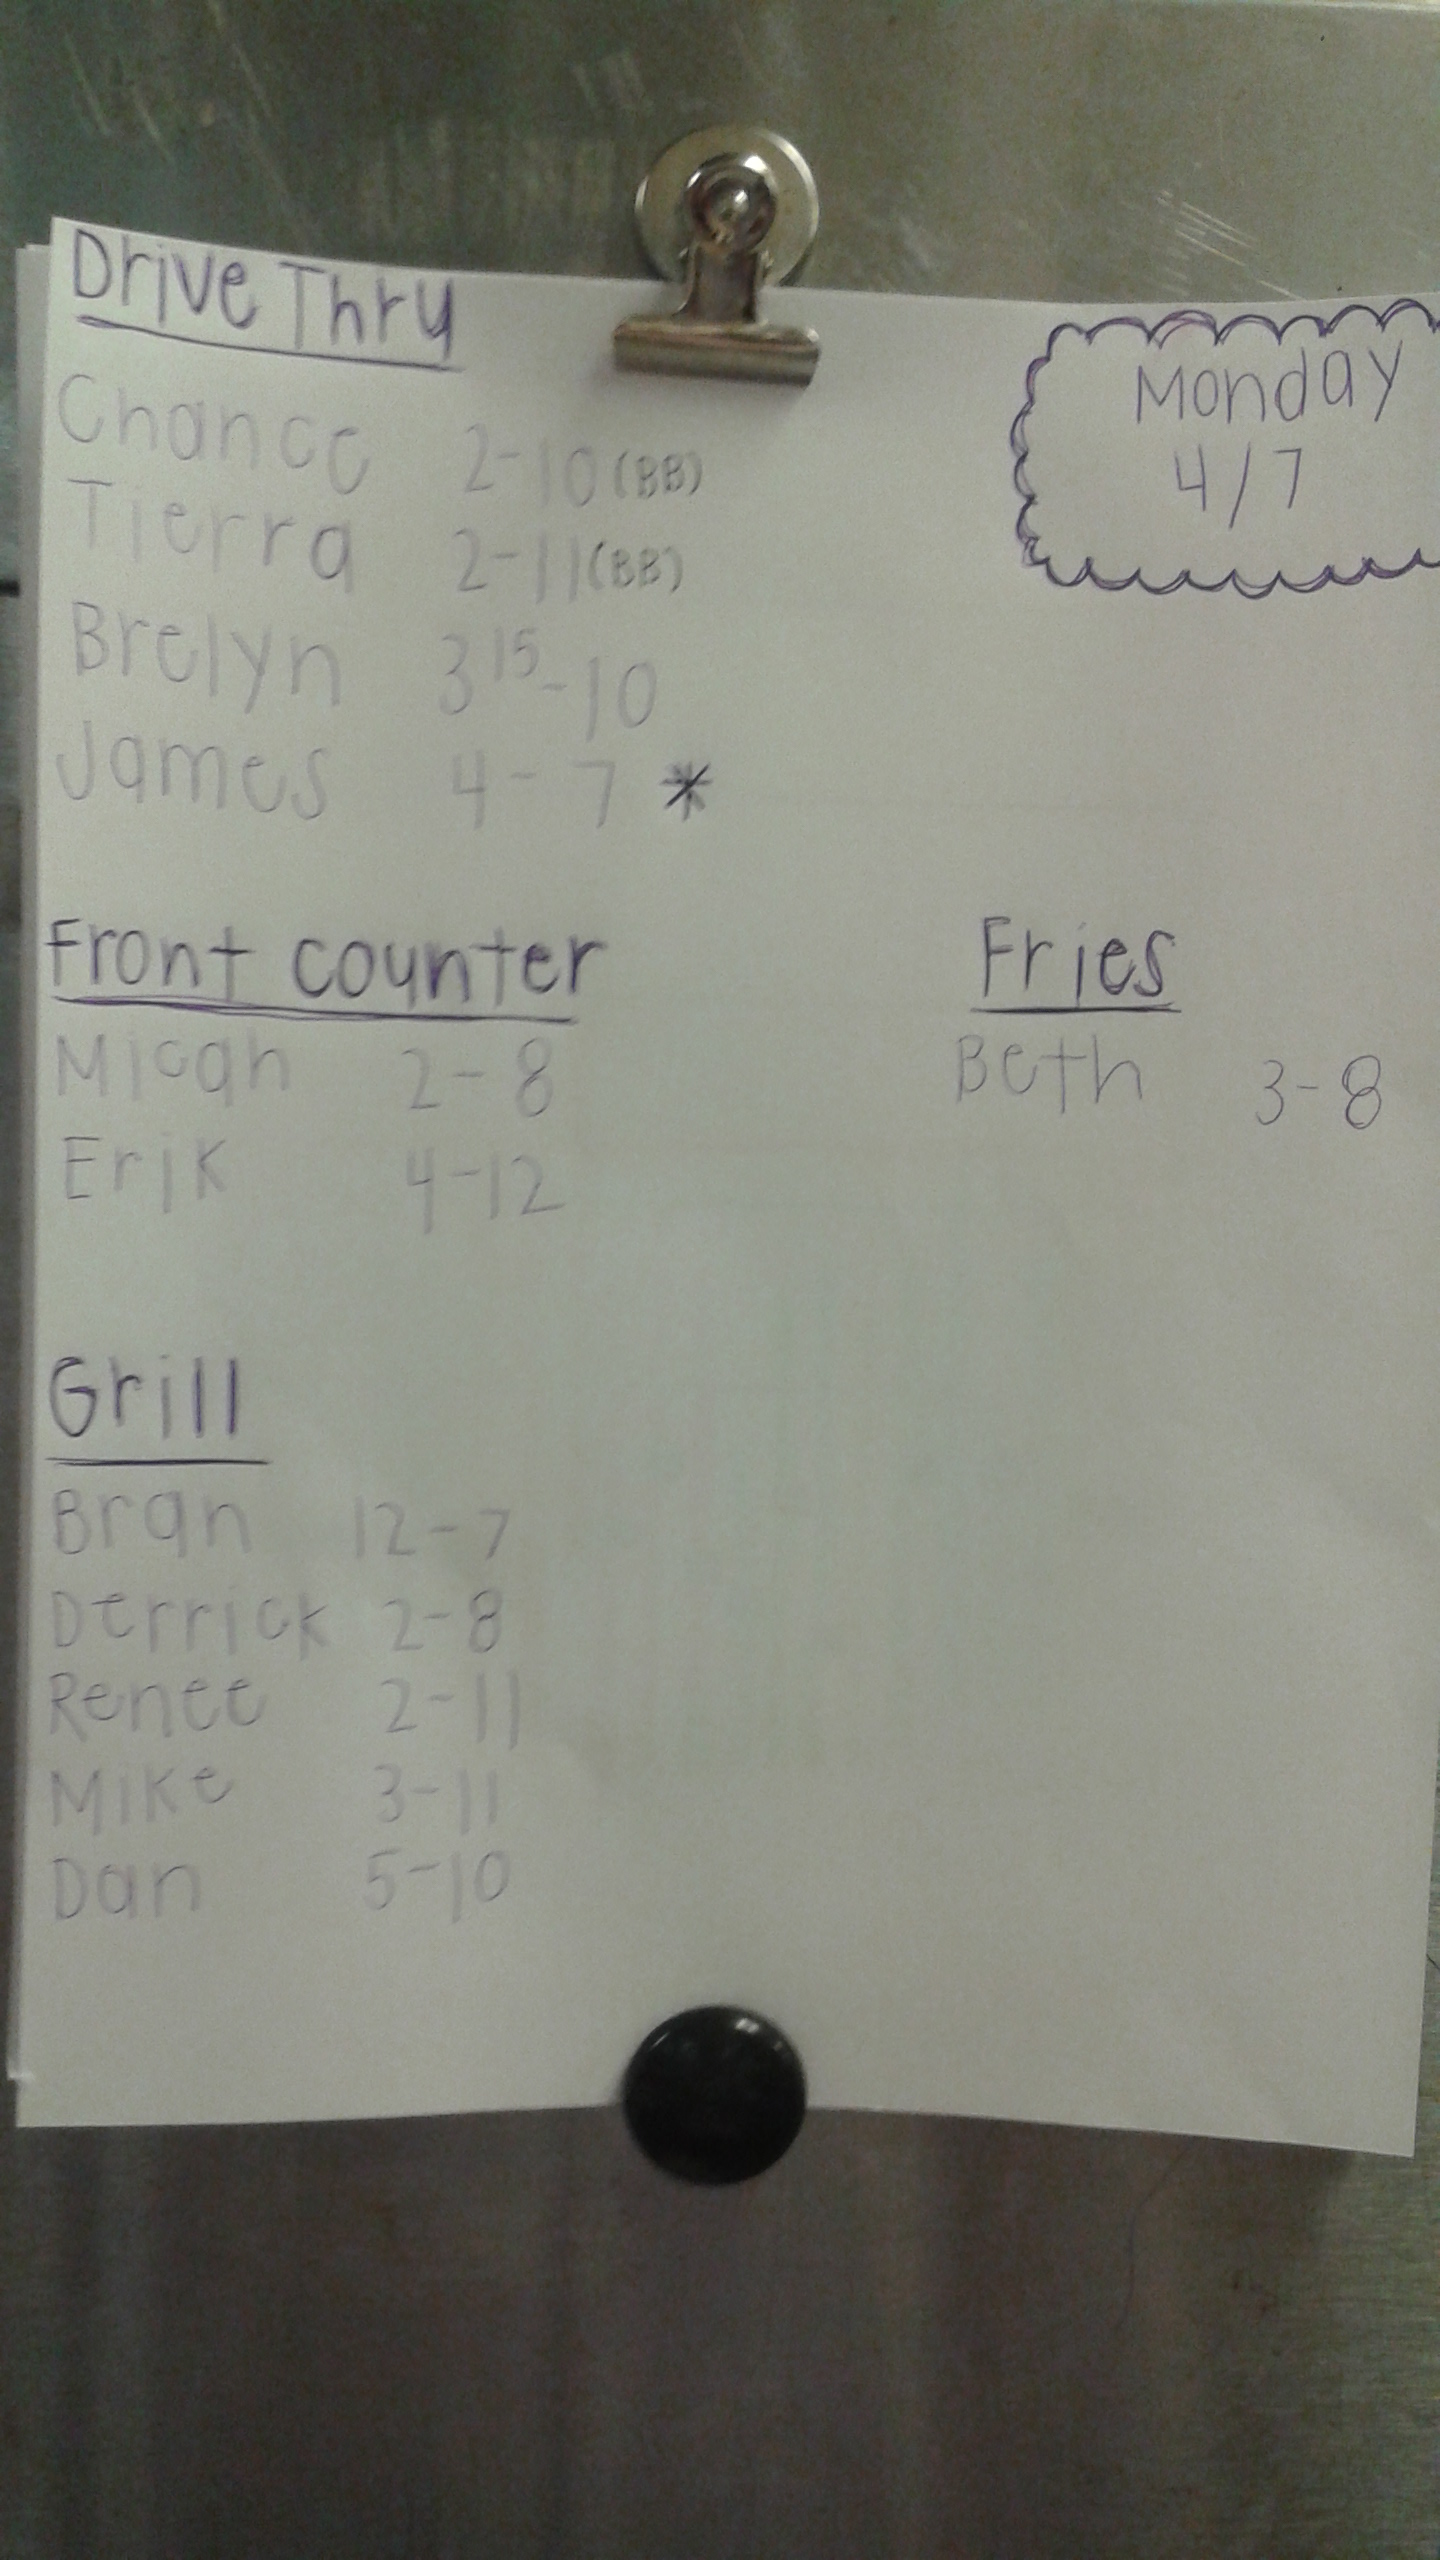 Drive Thru
Chance 2-10 (BB)
Tierra 2-11 (BB)
Brelyn 3¹⁵-10
James 4-7 *
Monday
4/7
Front counter
Micah 2-8
Erik 4-12
Fries
Beth 3-8
Grill
Bran 12-7
Derrick 2-8
Renee 2-11
Mike 3-11
Dan 5-10